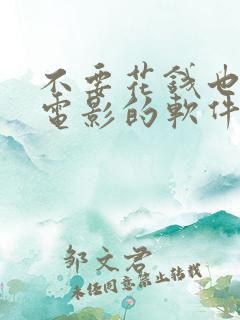 不要花錢也
電影的軟件
邹文君
未经同意禁止转载